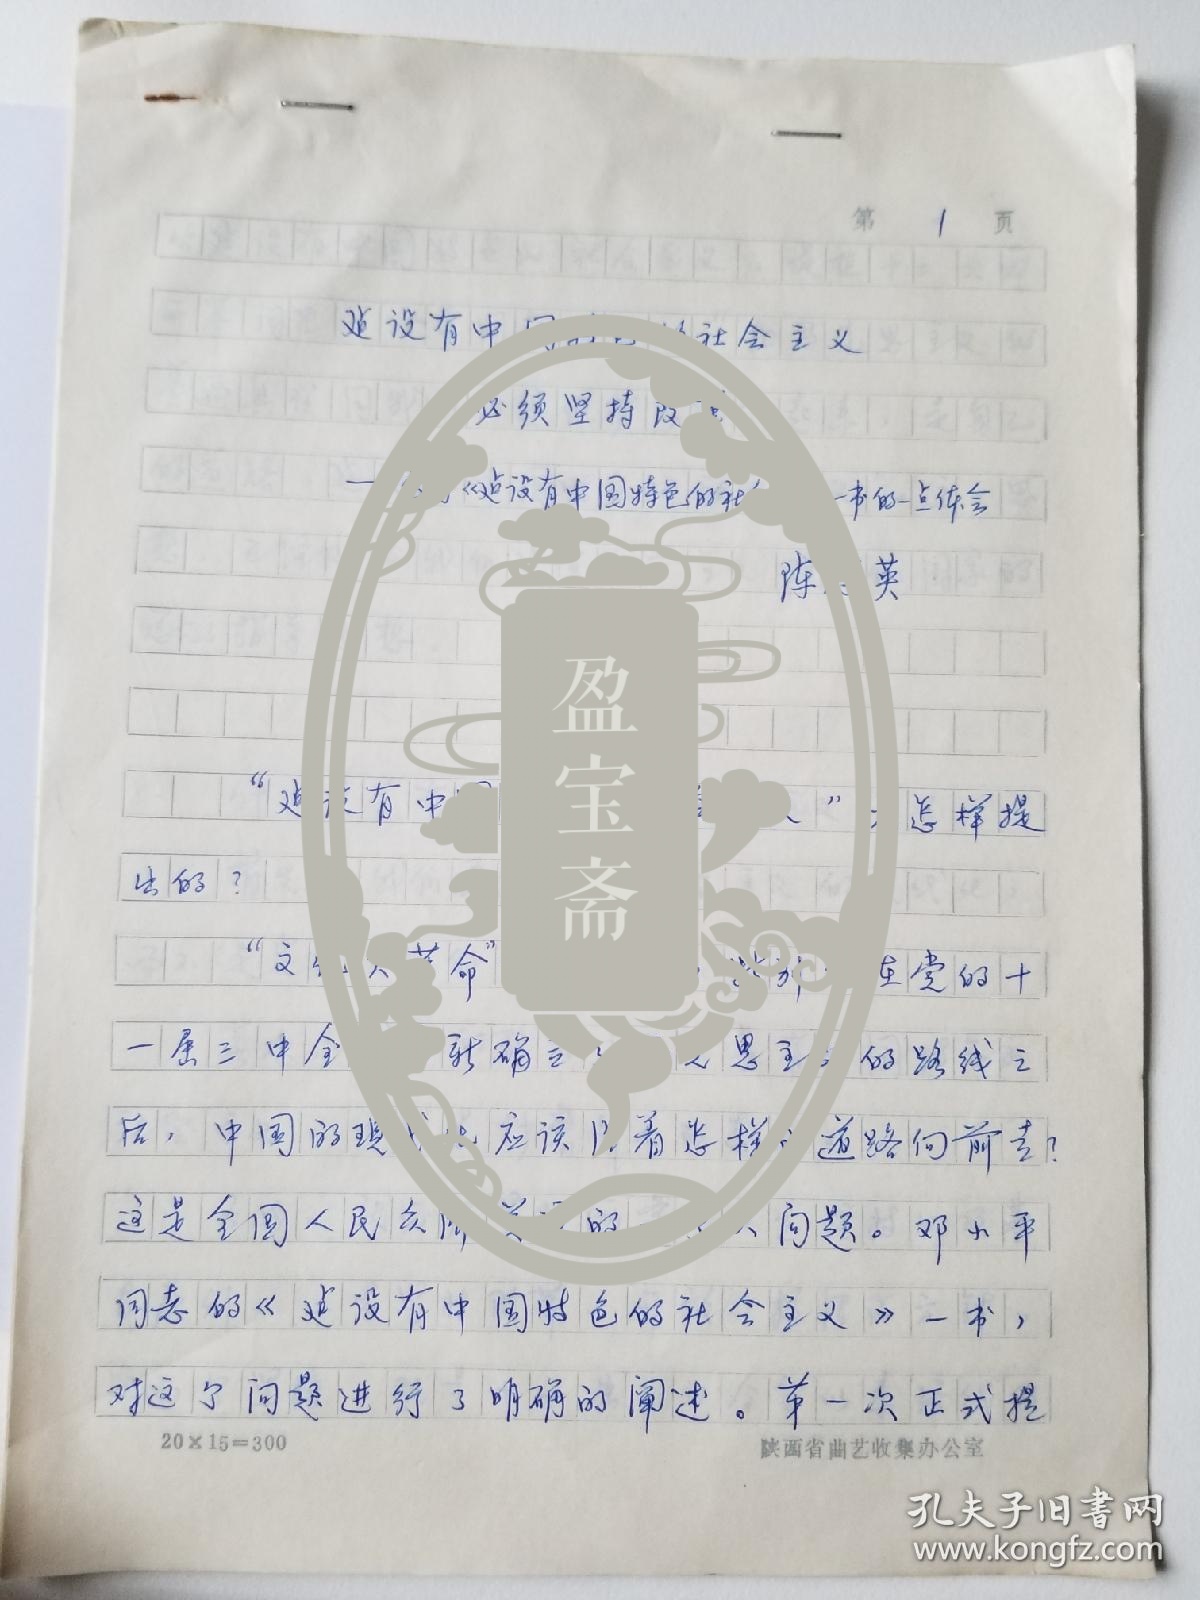 第 1 页
建设有中国特色的社会主义
必须坚持改
《建设有中国特色的社 一书的一点体会
陈 英
“建设有中国 ”是怎样提
出的?
“文化大革命” 特别 在党的十
一届三中全 新确立 思主义的路线之
后,中国的现代化应该沿着怎样的道路向前走?
这是全国人民众所 的 大问题。邓小平
同志的《建设有中国特色的社会主义》一书,
对这个问题进行了明确的阐述。第一次正式提
20×15=300
陕西省曲艺收集办公室
盈宝斋
孔夫子旧书网
www.kongfz.com